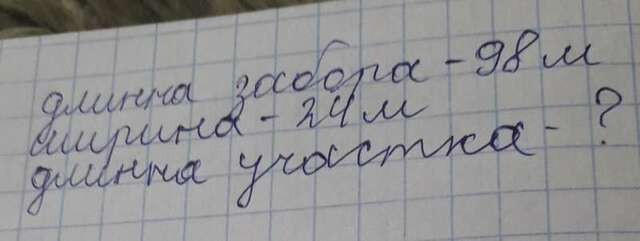 длинна забора - 98 м
ширина - 24 м
длинна участка - ?